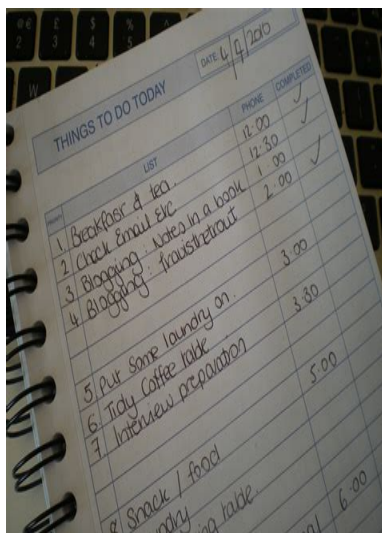 THINGS TO DO TODAY
DATE 4/9/2010
LIST PHONE COMPLETED
1 Breakfast & tea. 12:00 ✓
2 Check Email Etc 12:30 ✓
3 Blogging: Notes in a book 1:00 ✓
4 Blogging: travisthetrout 2:00
5. Put some laundry on. 3:00
6. Tidy Coffee table 3:30
7. Interview preparation
5:00
8 Snack / food
table. 6:00